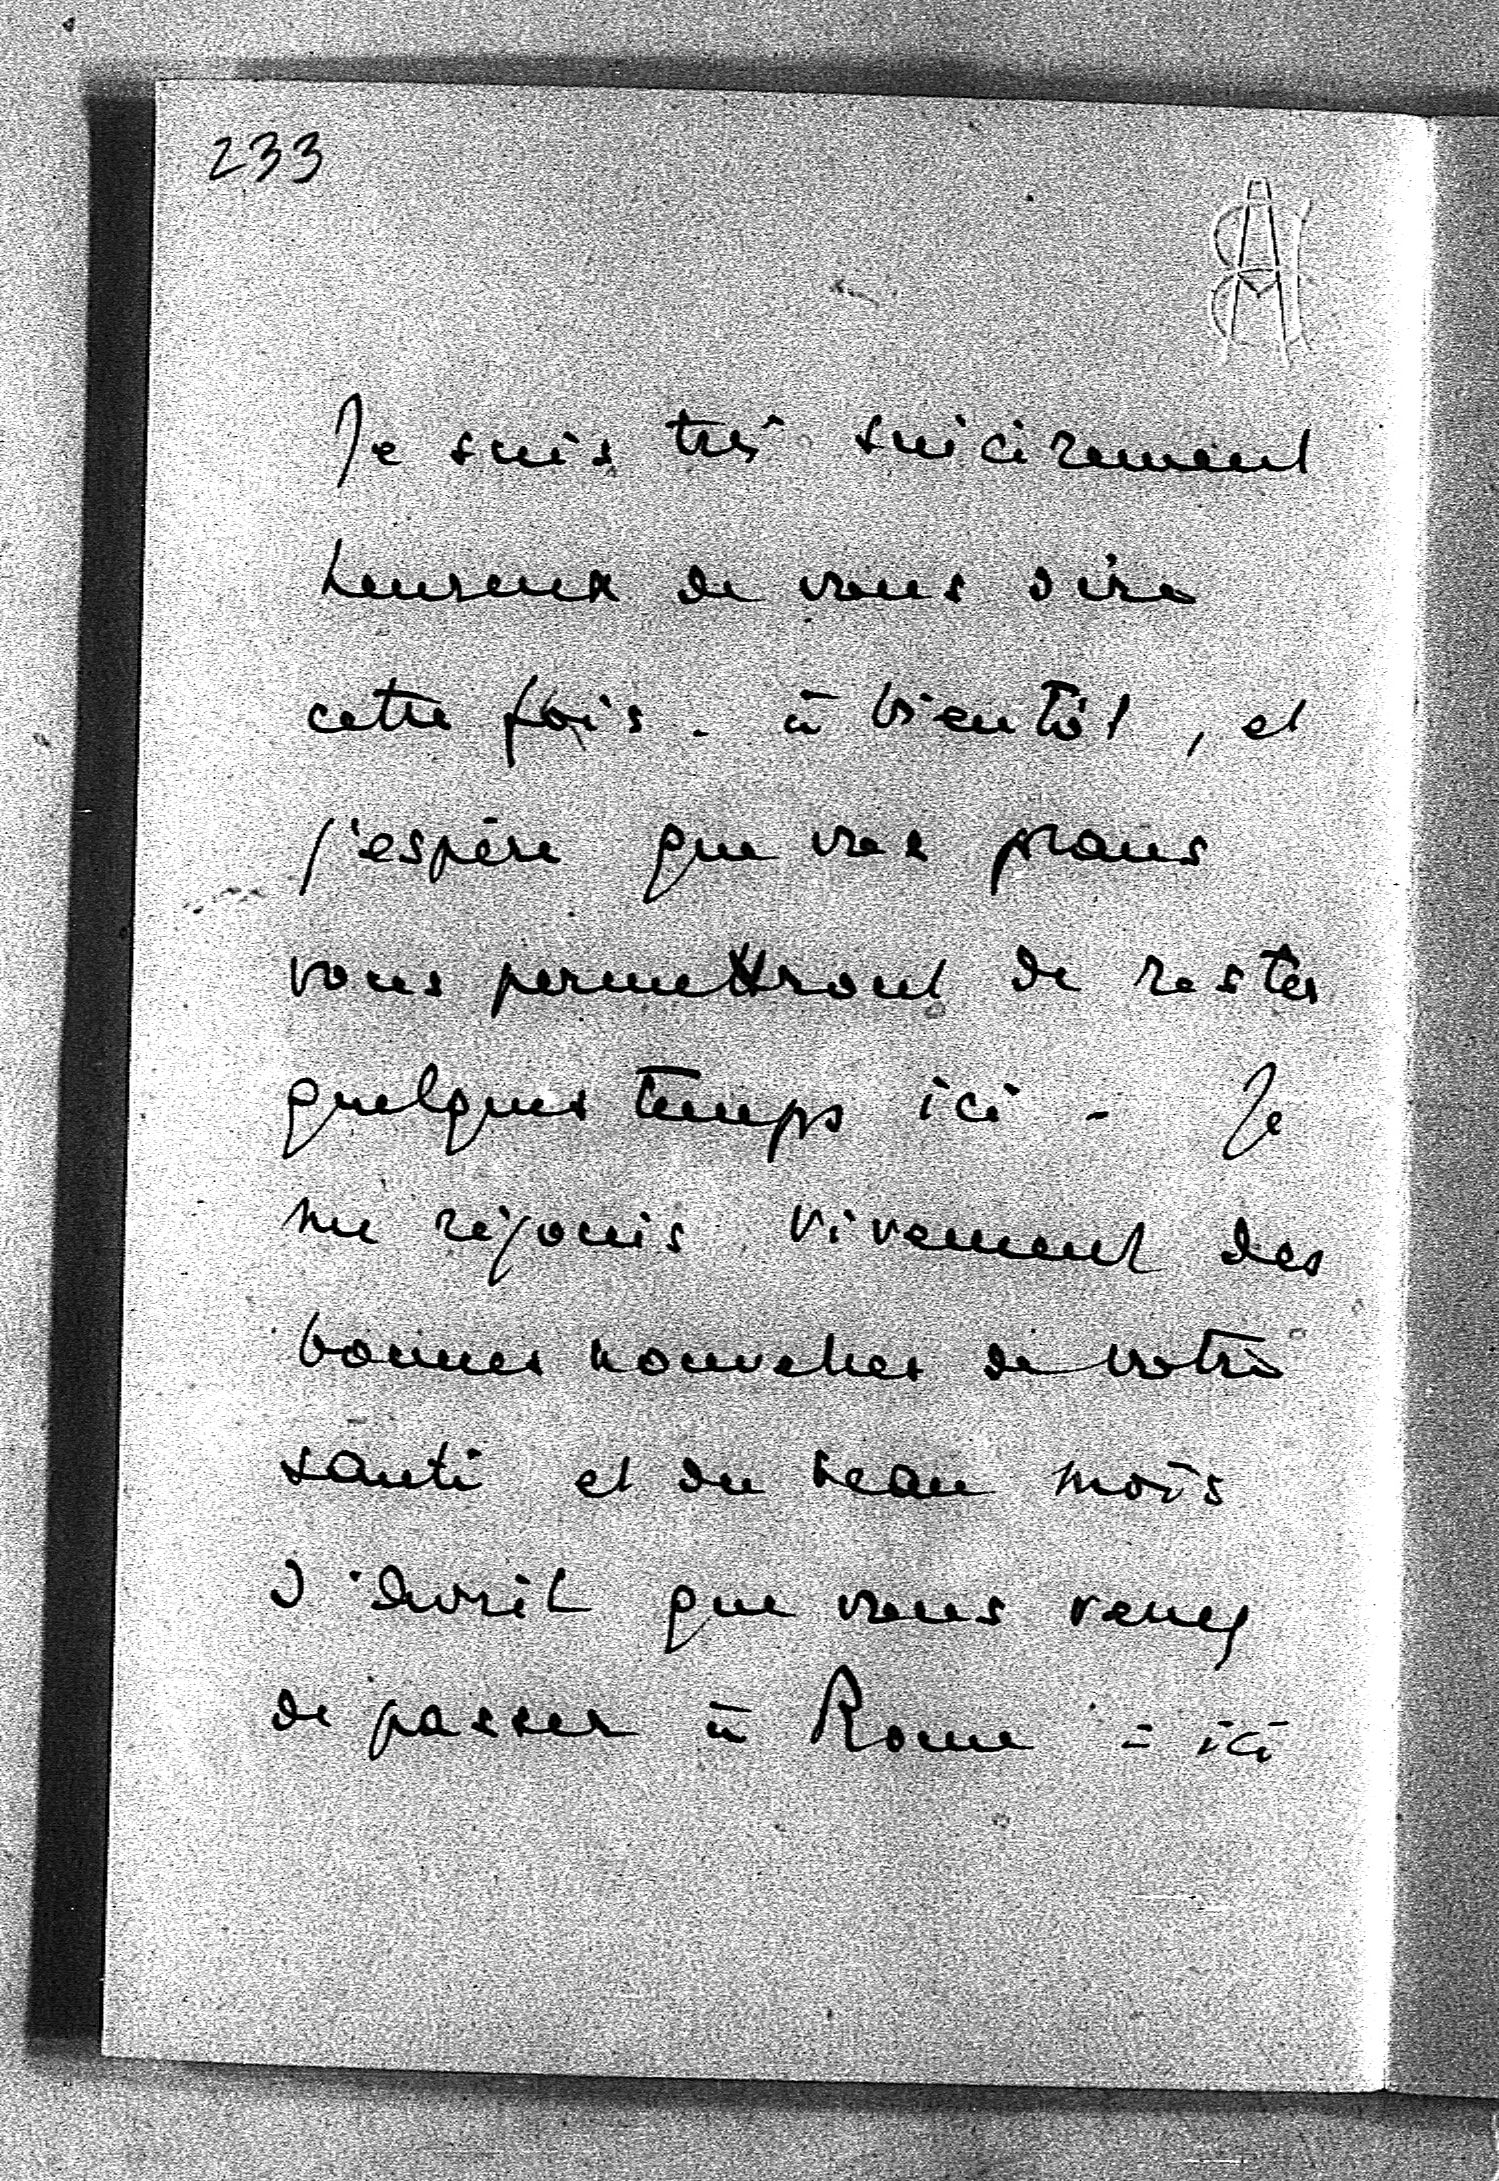 233
Je suis très sincèrement
heureux de vous dire
cette fois - à bientôt, et
j'espère que vos plans
vous permettront de rester
quelques temps ici - Je
me réjouis vivement des
bonnes nouvelles de votre
santé et du beau mois
d'avril que vous venez
de passer à Rome - ici